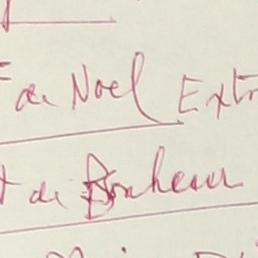 de Noel Extr
t de Bonheur